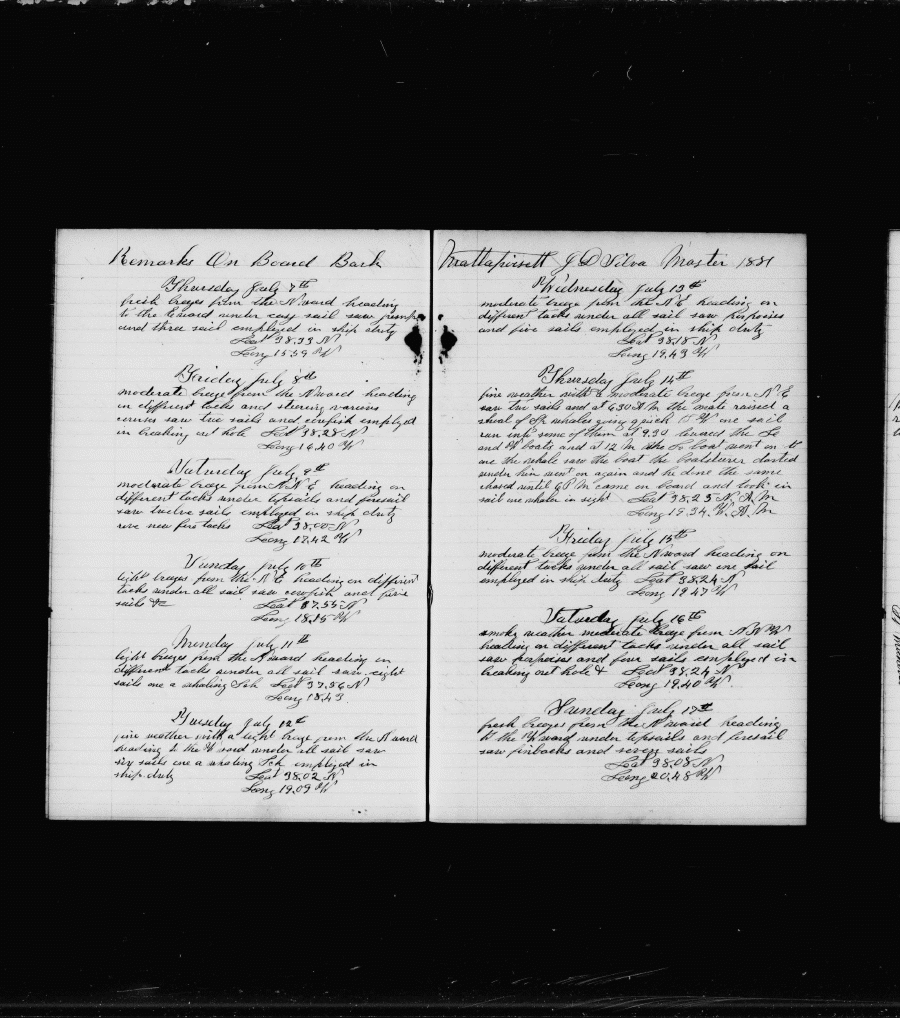 Remarks On Board Bark
Thursday July 7th
fresh breezes from the N ward heading
to the E ward under easy sail saw
and three sail employed in ship duty
Lat 38.33 N
Long 15.59 W
Friday July 8th
moderate breeze from the N ward heading
on different tacks and stering various
courses saw two sails and cowfish employed
in breaking out hole Lat 38.28 N
Long 16.40 W
Saturday July 9th
moderate breeze from N N E heading on
different tacks under topsails and foresail
saw twelve sails employed in ship duty
rove new fore tacks Lat 38.00 N
Long 17.42 W
Sunday July 10th
light breezes from the N E heading on different
tacks under all sail saw cowfish and five
sails &c Lat 37.55 N
Long 18.15 W
Monday July 11th
light breezes from the N ward heading on
different tacks under all sail saw eight
sails one a whaling Sch Lat 37.56 N
Long 18.43
Tuesday July 12th
fine weather with a light breeze from the N ward
heading to the W ward under all sail saw
six sails one a whaling Sch employed in
ship duty Lat 38.02 N
Long 19.09 W
Mattapoisett J D Silva Master 1881
Wednesday July 13th
moderate breeze from the N E heading on
different tacks under all sail saw porpoises
and five sails employed in ship duty
Lat 38.18 N
Long 19.43 W
Thursday July 14th
fine weather with a moderate breeze from N E
saw two sails and at 6.30 A M the mate raised a
shoal of Sp whales going quick to W one sail
run into some of them at 9.30 lowered the
and W boats and at 12 M the boat went on to
one the whale saw the boat the boatsteerer darted
under him went on again and he done the same
chased until 6 P M came on board and took in
sail no whale in sight Lat 38.25 N. A. M
Long 19.34. W. A. M
Friday July 15th
moderate breeze from the N ward heading on
different tacks under all sail saw one sail
employed in ship duty Lat 38.24 N
Long 19.47 W
Saturday July 16th
smoky weather moderate breeze from N N W
heading on different tacks under all sail
saw porpoises and four sails employed in
breaking out hole & Lat 38.24 N
Long 19.40 W.
Sunday July 17th
fresh breezes from the N ward heading
to the W ward under topsails and foresail
saw finbacks and seven sails
Lat 38.08 N
Long 20.48 W